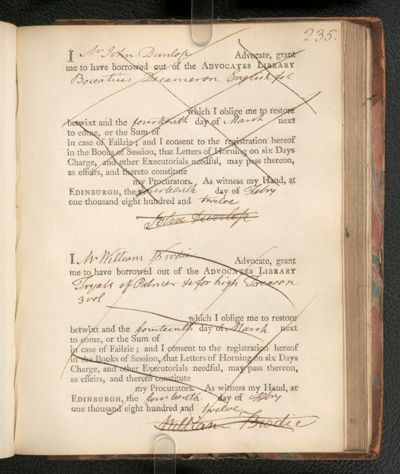 235.
I Mr John Dunlop Advocate, grant
me to have borrowed out of the ADVOCATES LIBRARY
Bocatius Decameron English fol
which I oblige me to restore
betwixt and the fourteenth day of March next
to come, or the Sum of
in case of Failzie; and I consent to the registration hereof
in the Books of Session, that Letters of Horning on six Days
Charge, and other Executorials needful, may pass thereon,
as effeirs, and thereto constitute
my Procurators. As witness my Hand, at
EDINBURGH, the fourteenth day of Febry
one thousand eight hundred and twelve
John Dunlop
I Mr William Brodie Advocate, grant
me to have borrowed out of the ADVOCATES LIBRARY
Tryals of Palmer &c for high Treason
3 vol
which I oblige me to restore
betwixt and the fourteenth day of March next
to come, or the Sum of
in case of Failzie; and I consent to the registration hereof
in the Books of Session, that Letters of Horning on six Days
Charge, and other Executorials needful, may pass thereon,
as effeirs, and thereto constitute
my Procurators. As witness my Hand, at
EDINBURGH, the fourteenth day of Febry
one thousand eight hundred and twelve
William Brodie